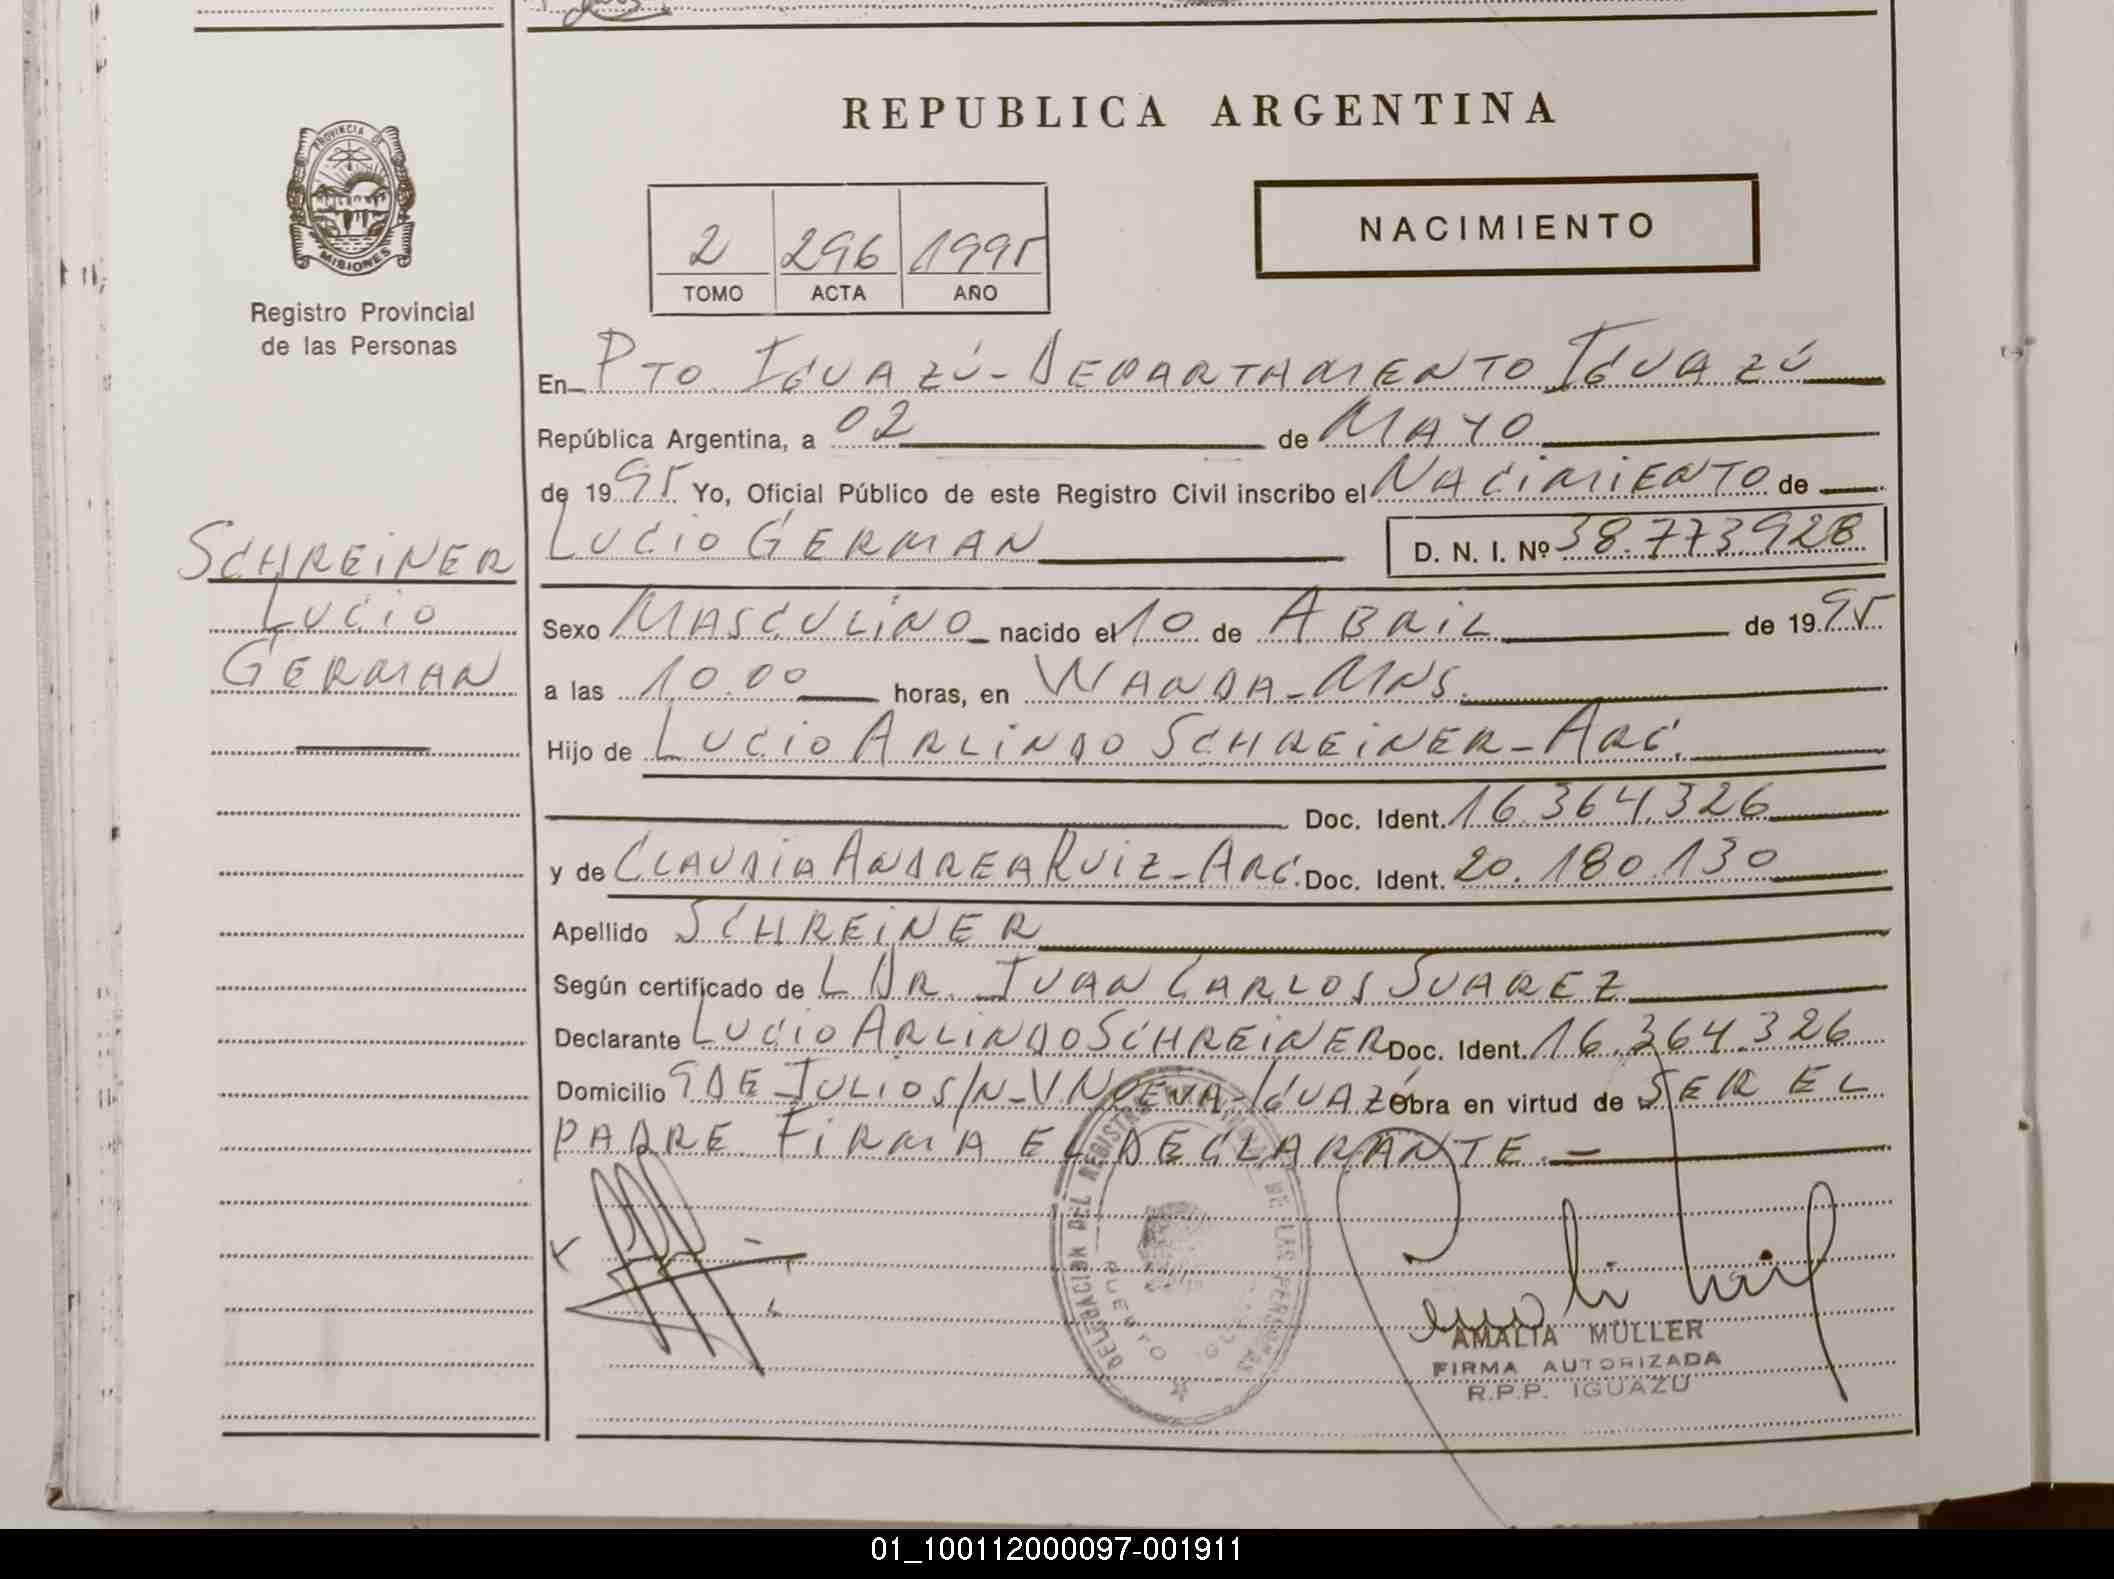 REPUBLICA ARGENTINA
PROVINCIA DE
MISIONES
Registro Provincial
de las Personas
2 296 1995
TOMO ACTA AÑO
NACIMIENTO
En PTO. IGUAZÚ - DEPARTAMENTO IGUAZÚ
República Argentina, a 02 de MAYO
de 1995 Yo, Oficial Público de este Registro Civil inscribo el NACIMIENTO de
LUCIO GERMAN D. N. I. Nº 38.773.928
SCHREINER
LUCIO
GERMAN
Sexo MASCULINO nacido el 10 de ABRIL de 1995
a las 10.00 horas, en WANDA - MNS.
Hijo de LUCIO ARLINDO SCHREINER - ARG.
Doc. Ident. 16.364.326
y de CLAUDIA ANDREA RUIZ - ARG. Doc. Ident. 20.180.130
Apellido SCHREINER
Según certificado de L DR. JUAN CARLOS SUAREZ
Declarante LUCIO ARLINDO SCHREINER Doc. Ident. 16.364.326
Domicilio 9 DE JULIO S/N - V. NUEVA - IGUAZÚ Obra en virtud de SER EL
PADRE FIRMA EL DECLARANTE. =
DELEGACION DEL REGISTRO DE LAS PERSONAS
PUERTO
AMALIA MULLER
FIRMA AUTORIZADA
R.P.P. IGUAZU
01_100112000097-001911